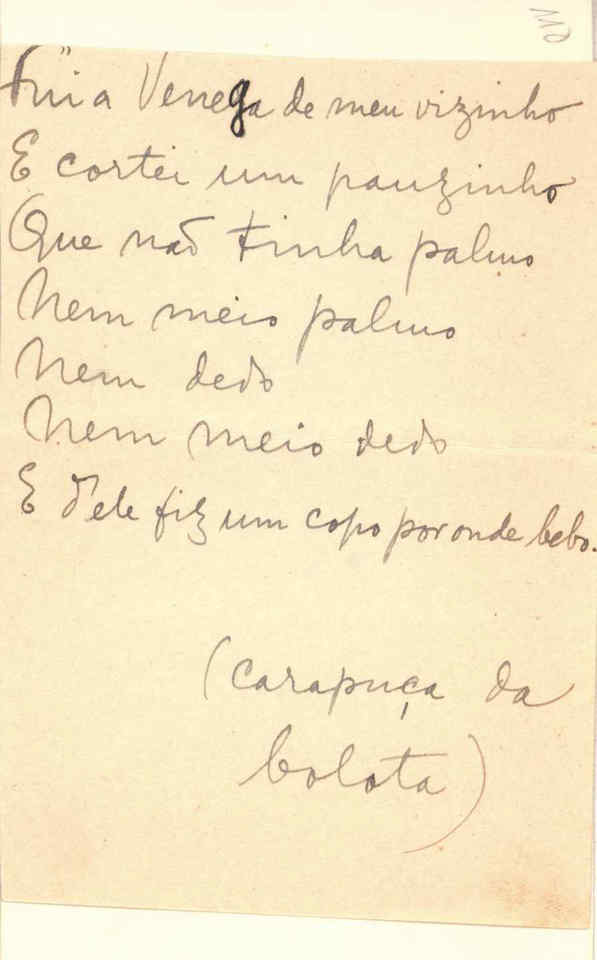 110
Fui a Venega de meu vizinho
E cortei um pauzinho
Que não tinha palmo
Nem meio palmo
Nem dedo
Nem meio dedo
E d'ele fiz um copo por onde bebo.
(carapuça da
bolota)